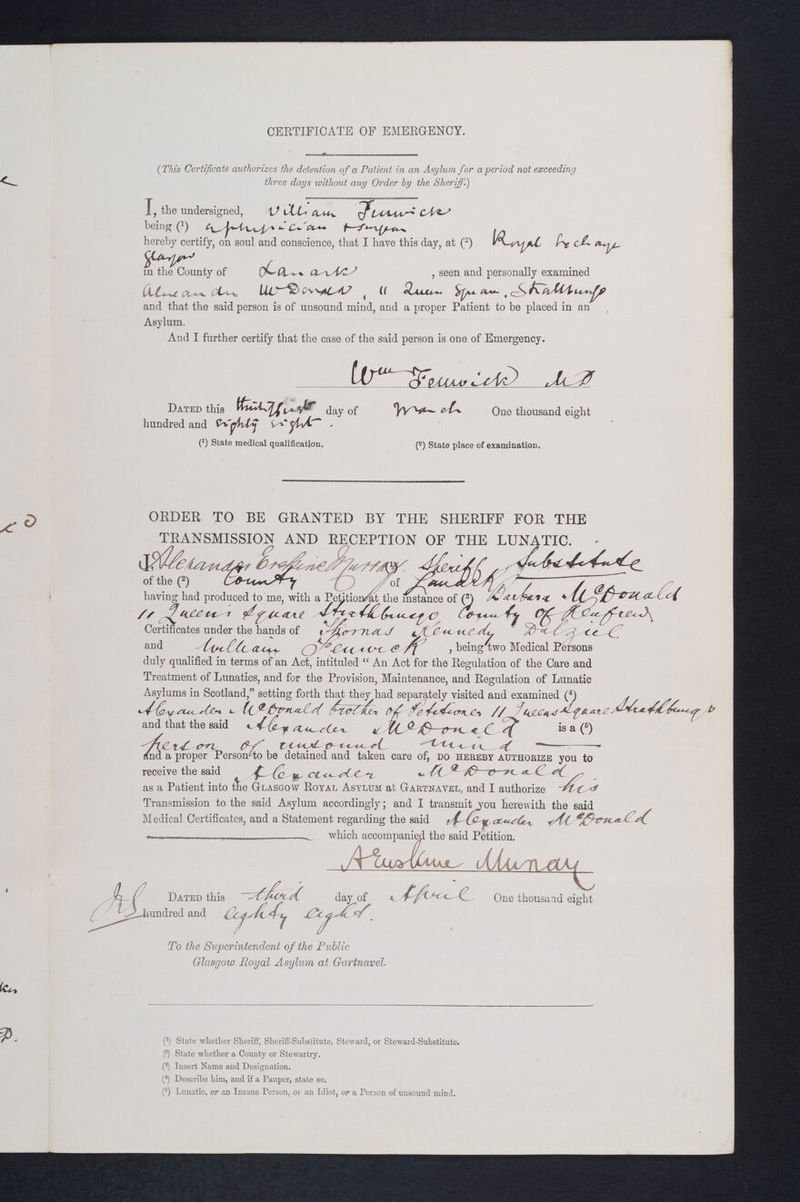 CERTIFICATE OF EMERGENCY.
(This Certificate authorizes the detention of a Patient in an Asylum for a period not exceeding
three days without any Order by the Sheriff.)
I, the undersigned, William Fenwick
being (1) a physician & surgeon
hereby certify, on soul and conscience, that I have this day, at (2) Royal Exchange
Glasgow
in the County of Lanark, seen and personally examined
Alexander McDonald, 11 Queen Square, Strathbungo
and that the said person is of unsound mind, and a proper Patient to be placed in an
Asylum.
And I further certify that the case of the said person is one of Emergency.
Wm Fenwick MD
DATED this thirty first day of March One thousand eight
hundred and eighty eight.
(1) State medical qualification. (2) State place of examination.
ORDER TO BE GRANTED BY THE SHERIFF FOR THE
TRANSMISSION AND RECEPTION OF THE LUNATIC.
I, Alexander Erskine Murray, Sheriff Substitute
of the (2) County of Lanark
having had produced to me, with a Petition at the instance of (3) Barbara McDonald
11 Queen's Square Strathbungo County of Renfrew
Certificates under the hands of Thomas Kennedy Dalziel
and William Fenwick, being two Medical Persons
duly qualified in terms of an Act, intituled “An Act for the Regulation of the Care and
Treatment of Lunatics, and for the Provision, Maintenance, and Regulation of Lunatic
Asylums in Scotland,” setting forth that they had separately visited and examined (4)
Alexander McDonald brother of Petitioner 11 Queens Square Strathbungo
and that the said Alexander McDonald is a (5)
person of unsound mind
and a proper Person to be detained and taken care of, DO HEREBY AUTHORIZE you to
receive the said Alexander McDonald
as a Patient into the GLASGOW ROYAL ASYLUM at GARTNAVEL, and I authorize his
Transmission to the said Asylum accordingly; and I transmit you herewith the said
Medical Certificates, and a Statement regarding the said Alexander McDonald
which accompanied the said Petition.
A Erskine Murray
DATED this third day of April One thousand eight
hundred and eighty eight.
To the Superintendent of the Public
Glasgow Royal Asylum at Gartnavel.
(1) State whether Sheriff, Sheriff-Substitute, Steward, or Steward-Substitute.
(2) State whether a County or Stewartry.
(3) Insert Name and Designation.
(4) Describe him, and if a Pauper, state so.
(5) Lunatic, or an Insane Person, or an Idiot, or a Person of unsound mind.